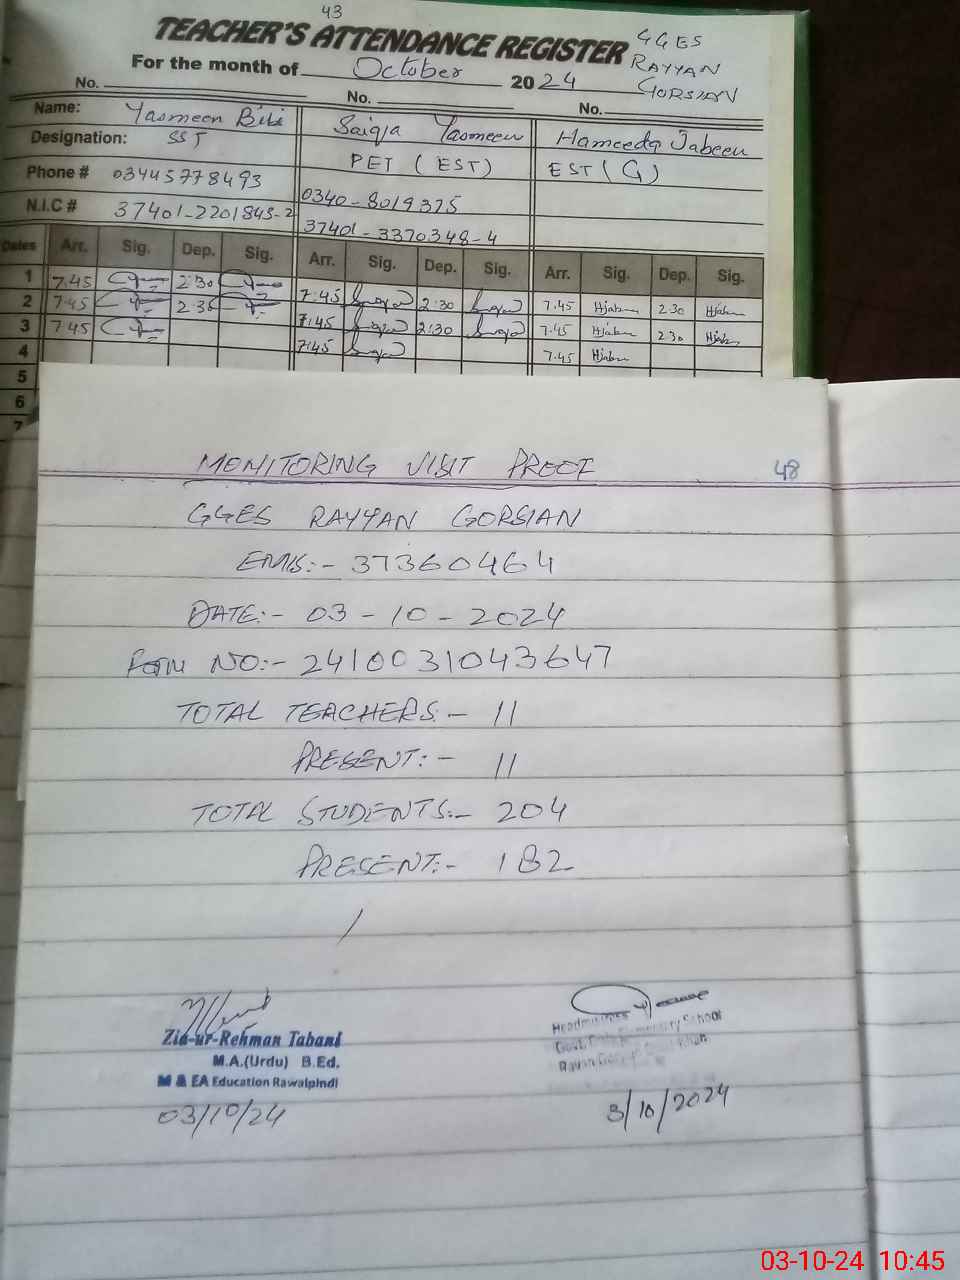 43
TEACHER'S ATTENDANCE REGISTER
GGES
RAYYAN
GORSIAN
For the month of October 2024
No. No. No.
Name: Yasmeen Bibi Saiqa Yasmeen Hameeda Jabeen
Designation: SST PET (EST) EST (G)
Phone # 03445778493 0340-8019375
N.I.C # 37401-2201845-2 37401-3370348-4
Dates Arr. Sig. Dep. Sig. Arr. Sig. Dep. Sig. Arr. Sig. Dep. Sig.
1 7.45 2:30 7:45 2:30 7.45 Hjabeen 2.30 Hjabeen
2 7.45 2:30 7:45 2:30 7.45 Hjabeen 2.30 Hjabeen
3 7.45 7:45 7.45 Hjabeen
4
5
6
7
MONITORING VISIT PROOF 48
GGES RAYYAN GORSIAN
EMIS:- 37360464
DATE:- 03-10-2024
Form NO:- 2410031043647
TOTAL TEACHERS:- 11
PRESENT:- 11
TOTAL STUDENTS:- 204
PRESENT:- 182
Zia-ur-Rehman Tabani
M.A.(Urdu) B.Ed.
M & EA Education Rawalpindi
03/10/24
Headmistress
Govt. Girls Elementary School
Rayan Gorsian Khan
3/10/2024
03-10-24 10:45